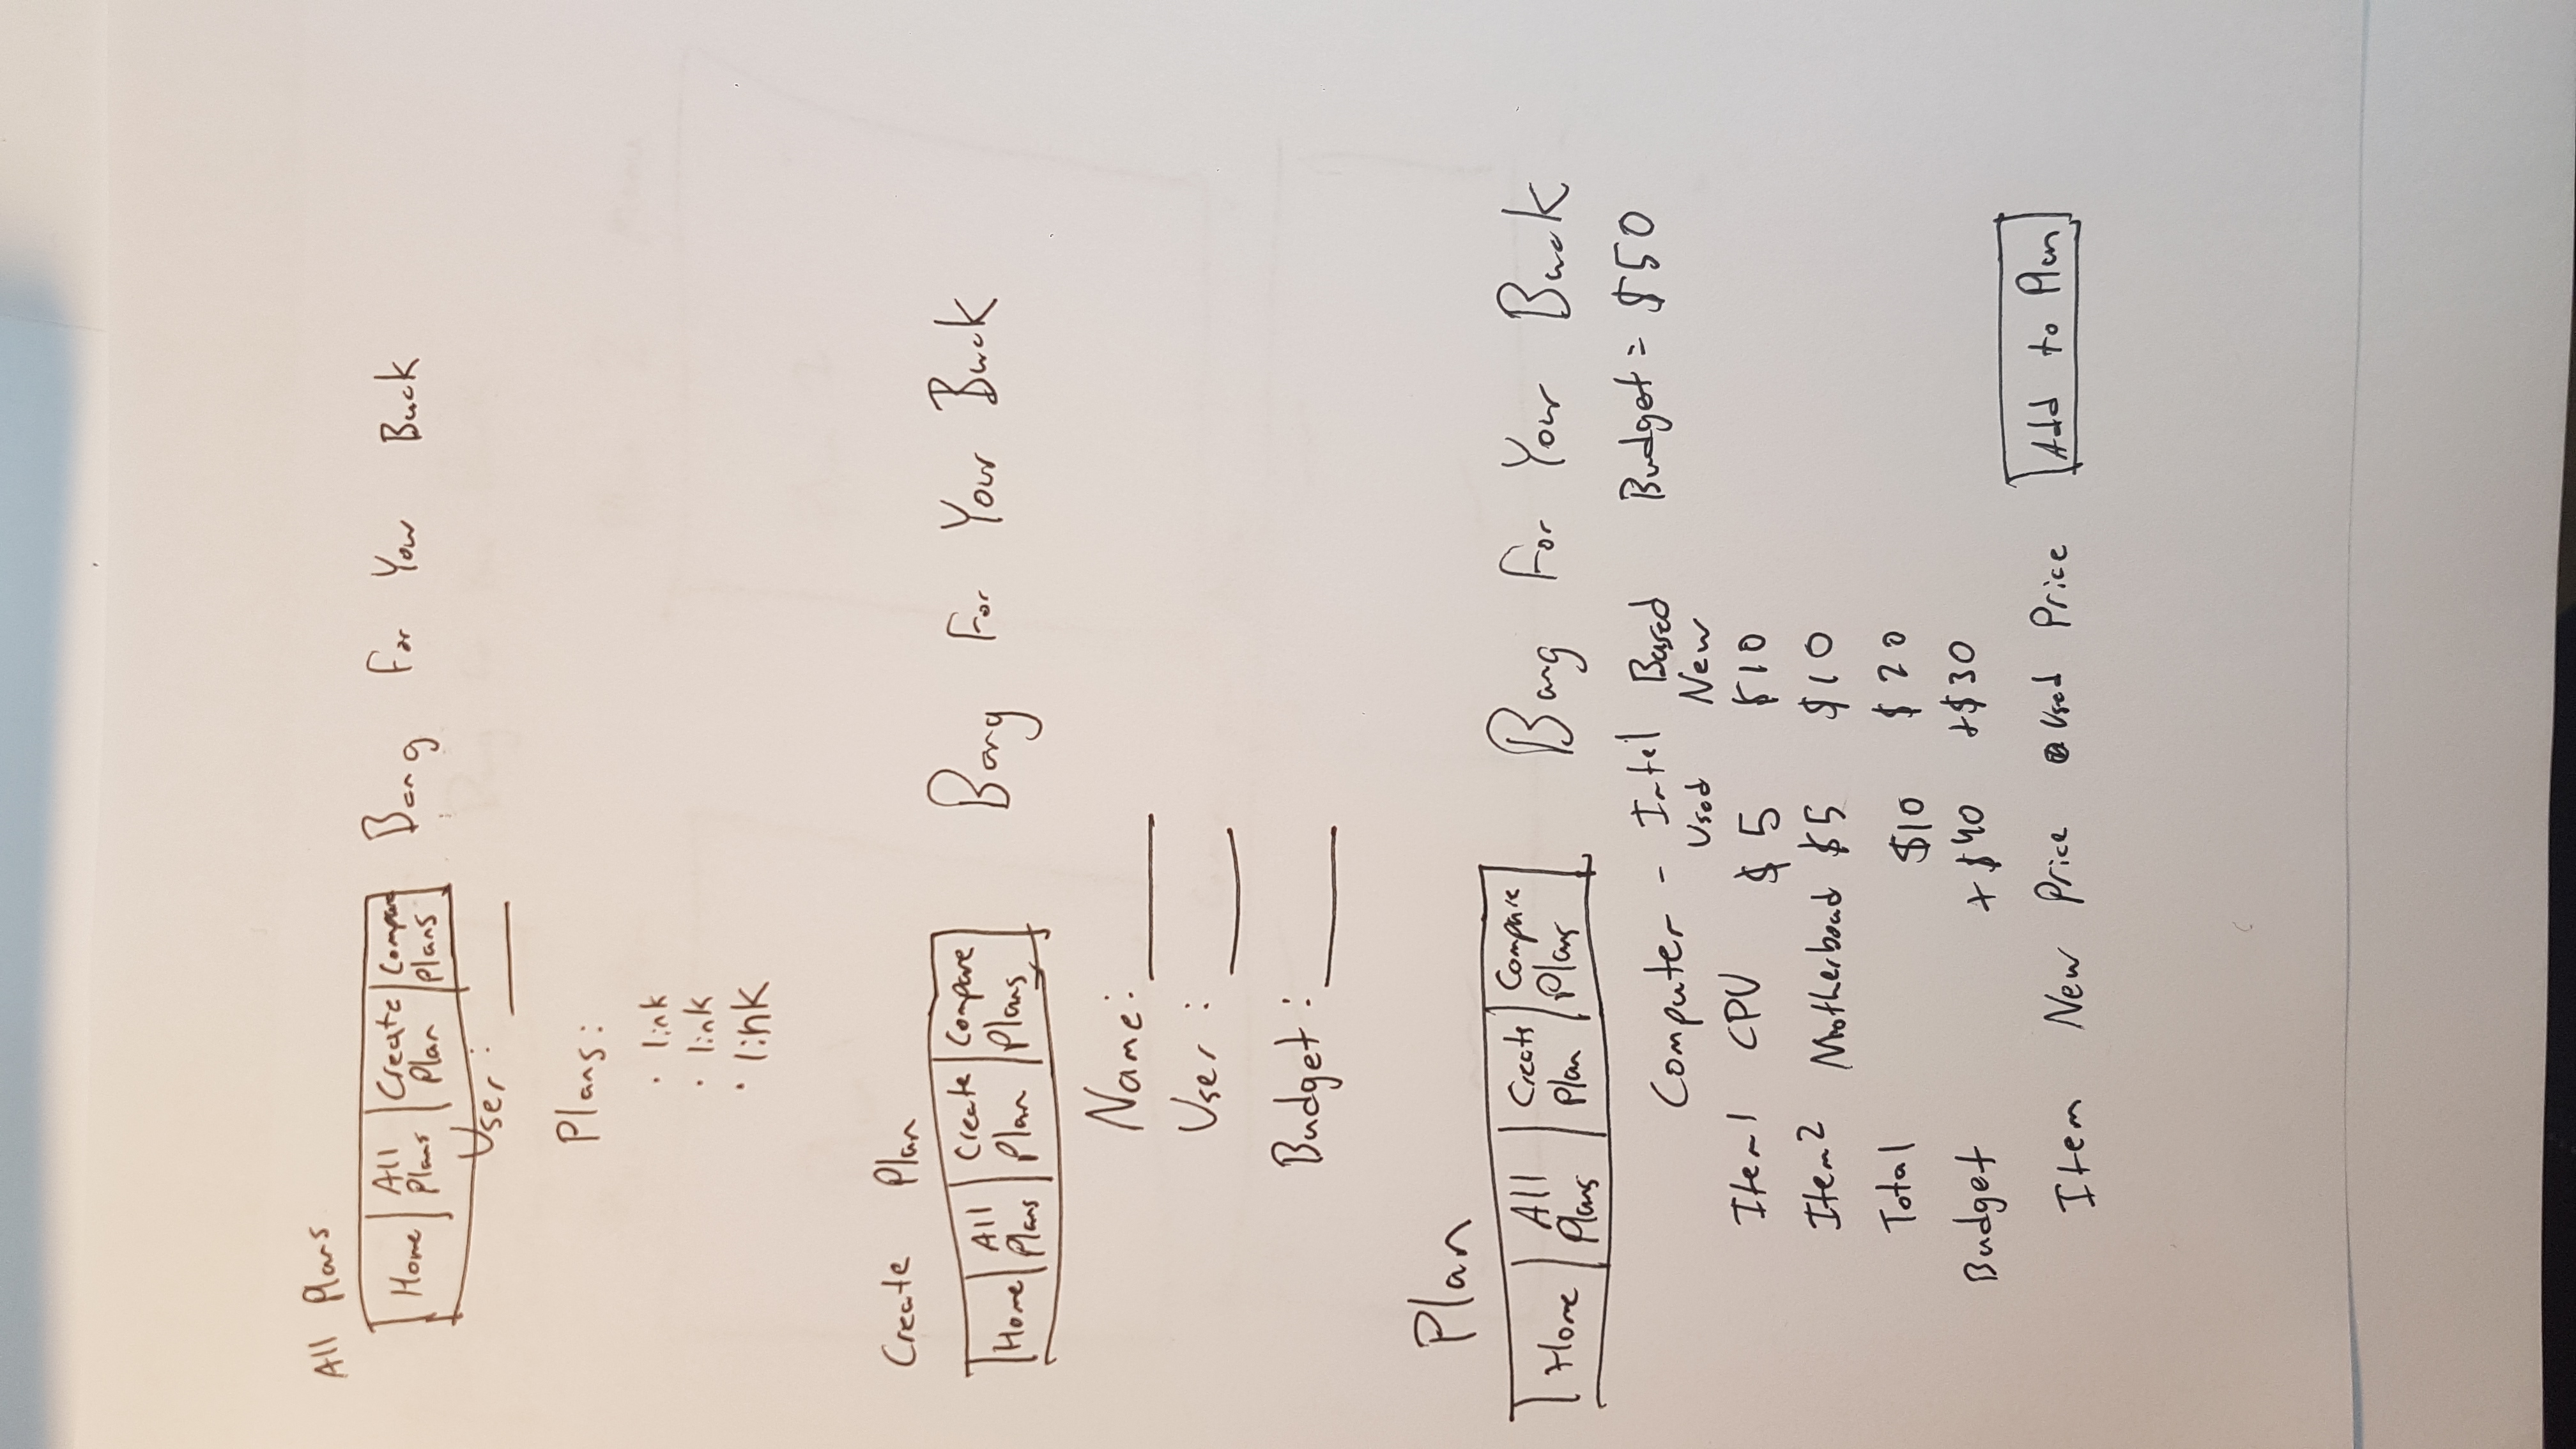 All Plans
Home All Plans Create Plan Compare Plans Bang For Your Buck
User: ____
Plans:
· link
· link
· link
Create Plan
Home All Plans Create Plan Compare Plans Bang For Your Buck
Name: ____
User: ____
Budget: ____
Plan
Home All Plans Create Plan Compare Plans Bang For Your Buck
Computer - Intel Based Budget = $50
Used New
Item 1 CPU $5 $10
Item 2 Motherboad $5 $10
Total $10 $20
Budget +$40 +$30
Item New Price Used Price Add to Plan